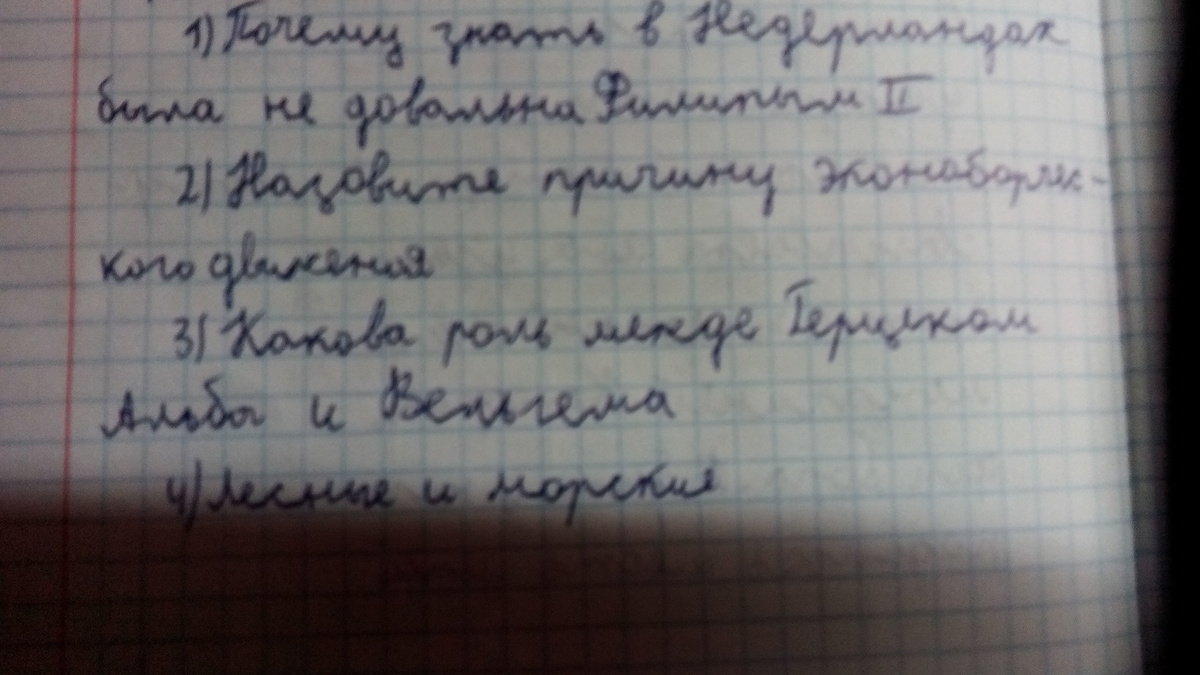 1) Почему знать в Недерландах
была не довальна Филипым II
2) Назовите причину эконаборчес-
кого движения
3) Какова роль между Герцеком
Альбы и Вельгема
4) лесные и морские